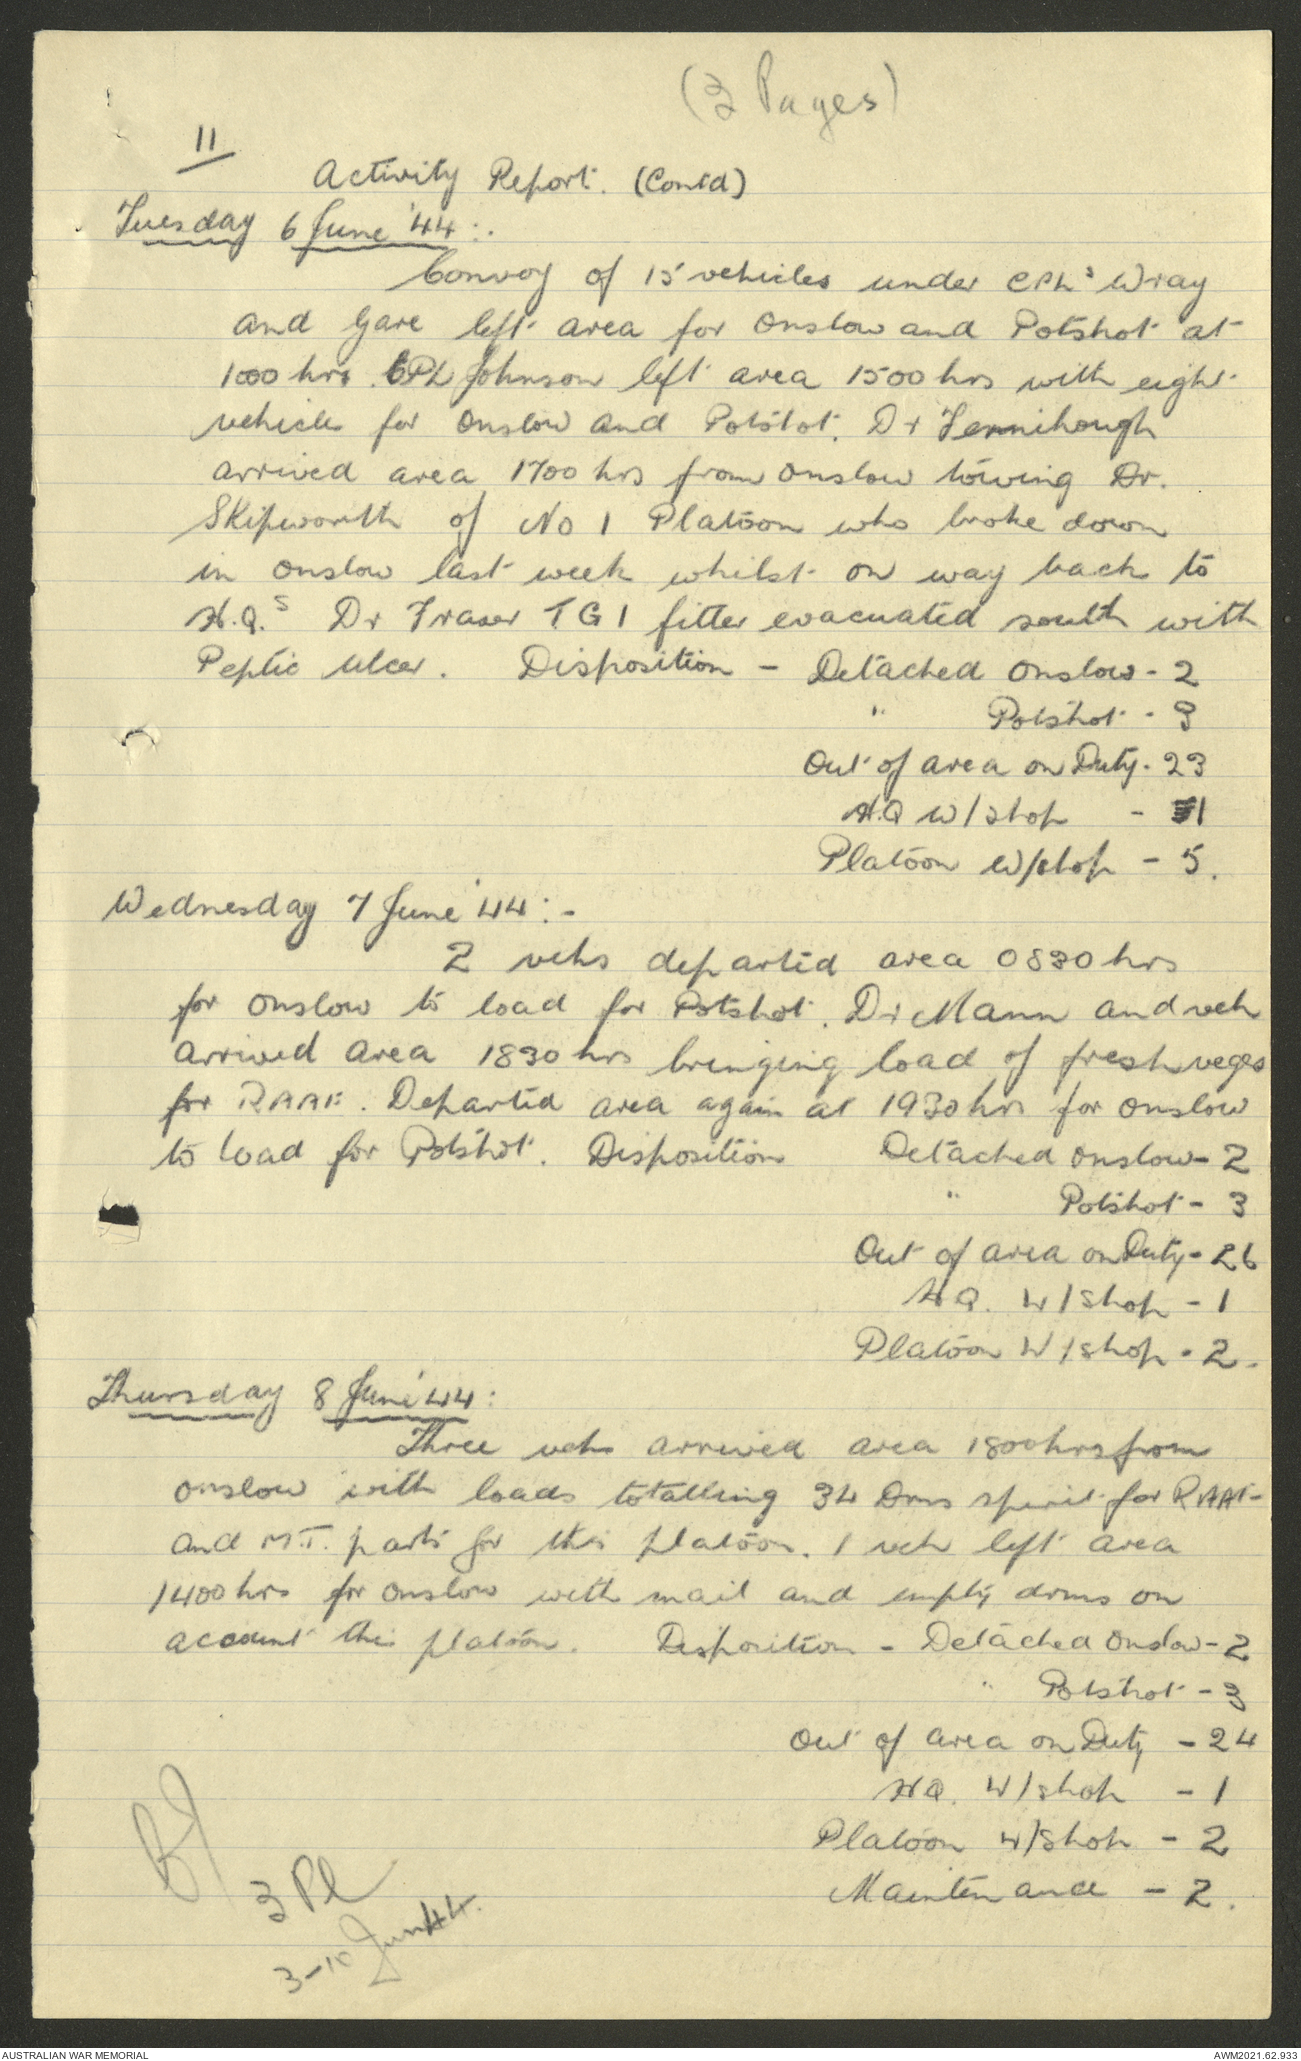 (3 Pages)
11
Activity Report. (Contd)
Tuesday 6 June '44:.
Convoy of 15 vehicles under CPLs Wray
and Gare left area for Onslow and Potshot at
1000 hrs. CPL Johnson left area 1500 hrs with eight
vehicles for Onslow and Potshot. Dr Fennihough
arrived area 1700 hrs from Onslow towing Dr.
Skipworth of No 1 Platoon who broke down
in Onslow last week whilst on way back to
H.Q.s Dr Fraser T.G 1 fitter evacuated south with
Peptic Ulcer. Disposition - Detached Onslow - 2
" Potshot - 3
Out of area on Duty - 23
H.Q W/shop - 1
Platoon W/shop - 5.
Wednesday 7 June '44:-
2 vehs departed area 0830 hrs
for Onslow to load for Potshot. Dr Mann and veh
arrived area 1830 hrs bringing load of fresh veges
for RAAF. Departed area again at 1930 hrs for Onslow
to load for Potshot. Disposition Detached Onslow - 2
" Potshot - 3
Out of area on Duty - 26
H.Q. W/Shop - 1
Platoon W/shop - 2.
Thursday 8 June '44:
Three vehs arrived area 1800hrs from
Onslow with loads totalling 34 Drms spirit for RAAF
and M.T. parts for this platoon. 1 veh left area
1400 hrs for Onslow with mail and empty drms on
account this platoon. Disposition - Detached Onslow - 2
" Potshot - 3
Out of area on Duty - 24
H.Q. W/shop - 1
Platoon W/Shop - 2
Maintenance - 2.
3 Pl
3-10 Jun 44.
AUSTRALIAN WAR MEMORIAL
AWM2021.62.933